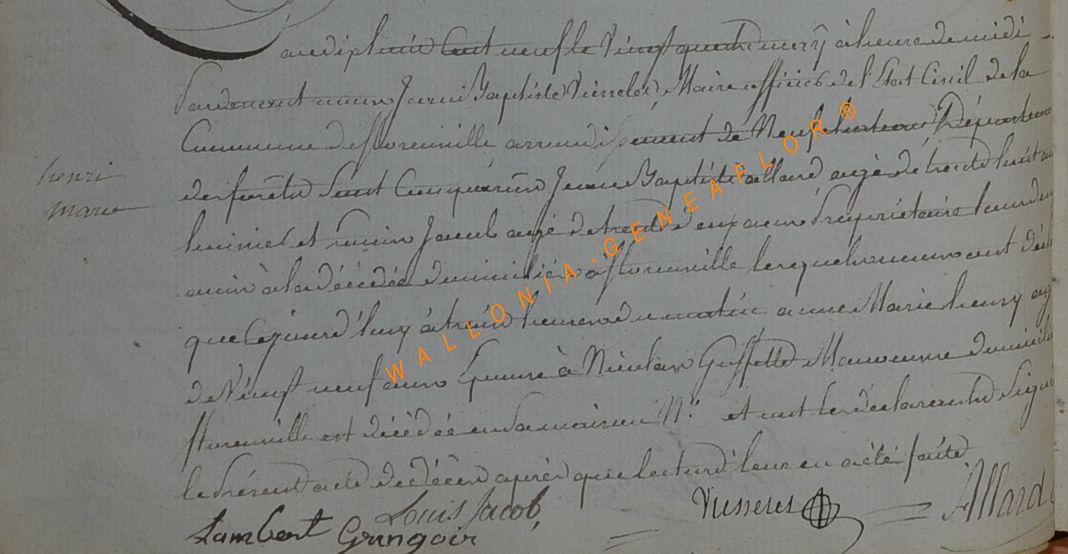 an dix huit Cent neuf le Vingt quatre mars à heure de midi
Pardevant nous Jean Baptiste Maire officier de l'Etat Civil de la
Commune de florenville arrondissement de Neufchateau Département
des forêts Sont Comparus Jean Baptiste allard agé de trente huit ans
huissier et Jacob agé de trente deux ans Propriétaire tous deux
amis à la décédée domiciliés à florenville lesquels nous ont
que Cejourd'huy à trois heures du matin anne Marie henry
de Vingt neuf ans Epouse à Nicolas Goffette Manoeuvre
florenville est décédée en sa maison N.° et ont les déclarants Signé
le Présent acte de décès après que lecture leur en a été faite
henri
marie
Lambert Gringoir Louis Jacob, Allard
WALLONIA-GENEAFLOR®